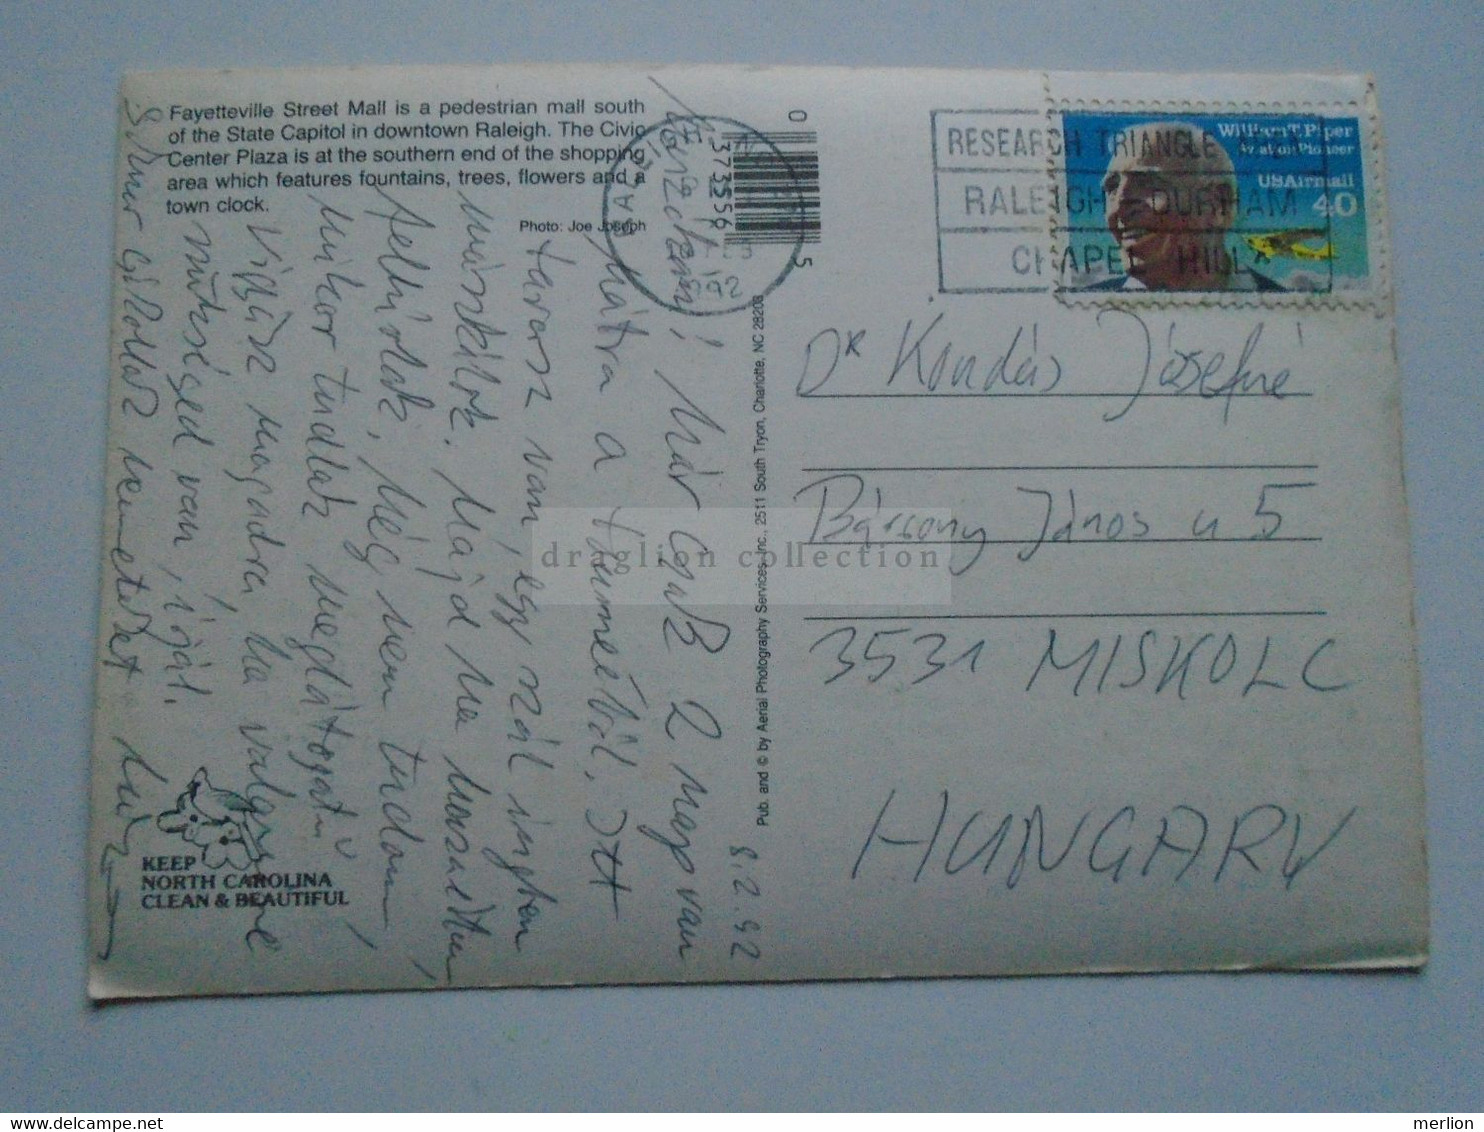 Fayetteville Street Mall is a pedestrian mall south
of the State Capitol in downtown Raleigh. The Civic
Center Plaza is at the southern end of the shopping
area which features fountains, trees, flowers and a
town clock.
Photo: Joe Joseph
0
373556
5
NC
1992
RESEARCH TRIANGLE
RALEIGH DURHAM
CHAPEL HILL
William T. Piper
Aviation Pioneer
USAirmail
40
Dr Kondás Józsefné
Bársony János u 5
3531 MISKOLC
HUNGARY
8.2.92
Már csak 2 nap van
hátra a Itt
tavasz van, egy szál ingben
mászkálok. Majd ha
Még nem tudom,
mikor tudlak meglátogatni
Vigyázz magadra, ha
szükséged van, írjál.
Pub. and © by Aerial Photography Services, Inc., 2511 South Tryon, Charlotte, NC 28203
KEEP
NORTH CAROLINA
CLEAN & BEAUTIFUL
draglion collection
merlion